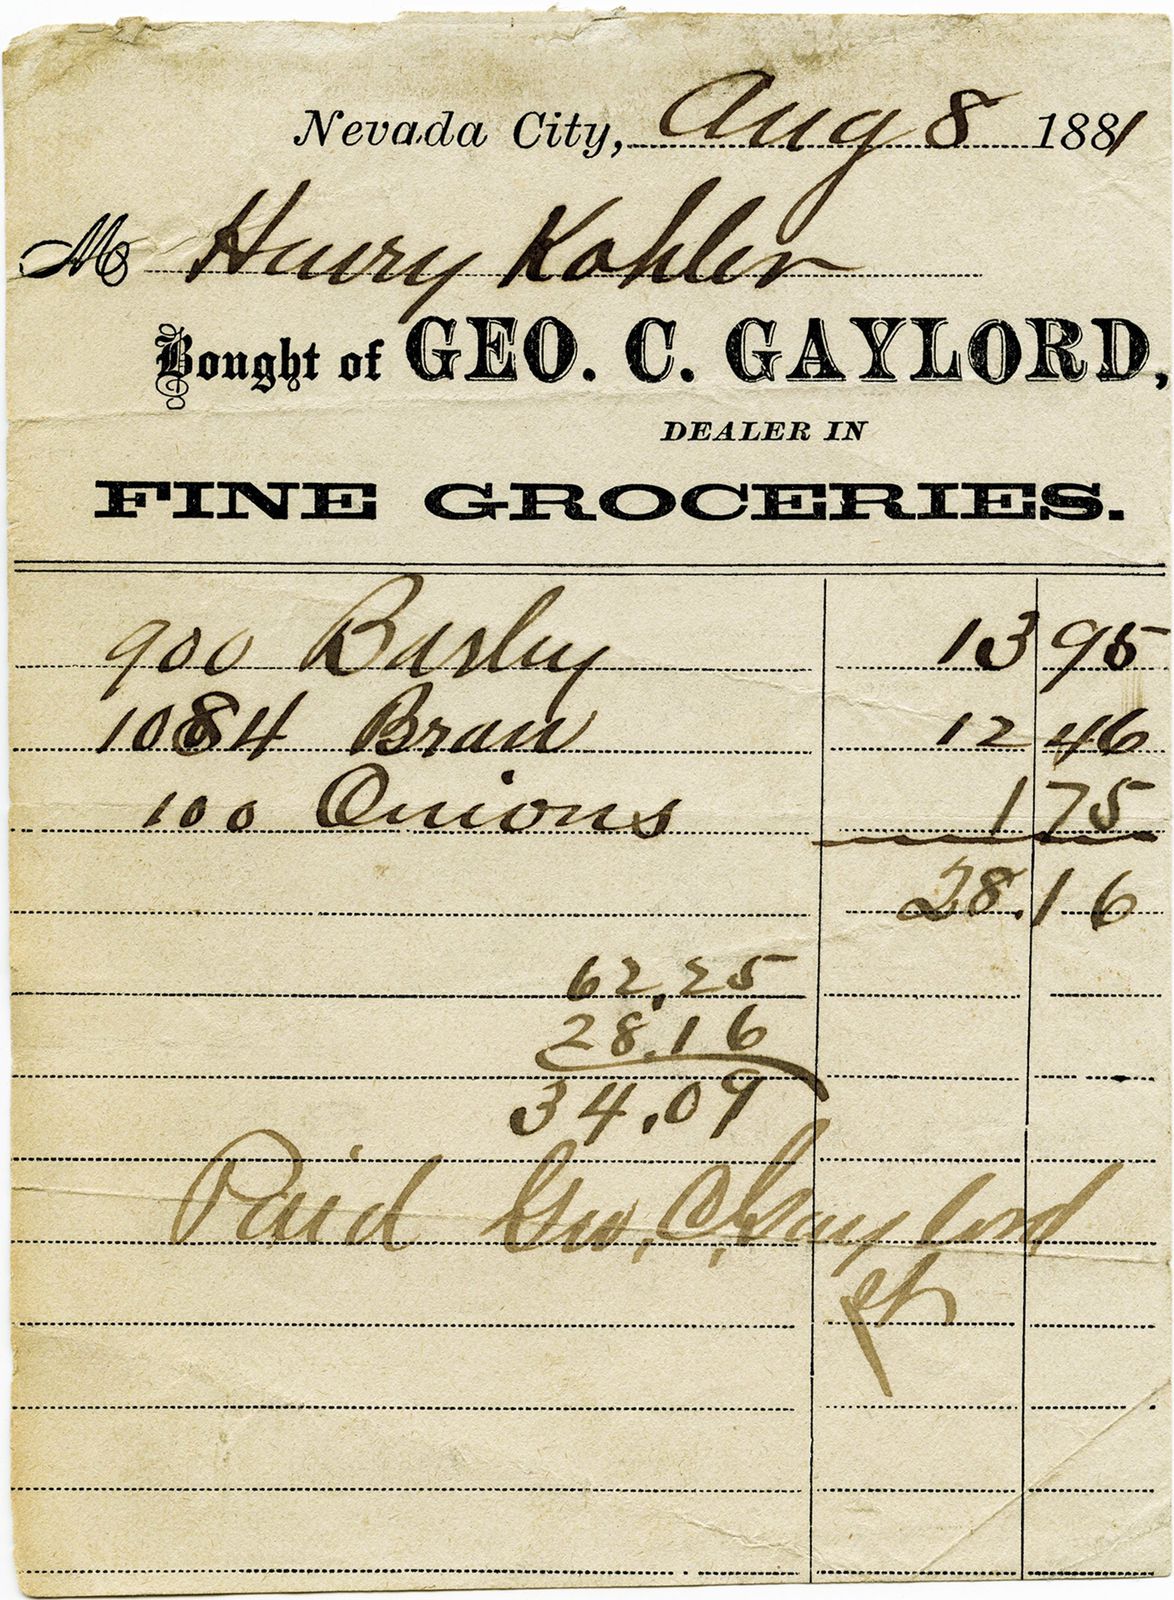 Nevada City, Aug 8 1881
M Henry Kohler
Bought of GEO. C. GAYLORD,
DEALER IN
FINE GROCERIES.
900 Barley 13 95
1084 Bran 12 46
100 Onions 1 75
28.16
62.25
28.16
34.09
Paid Geo. C. Gaylord